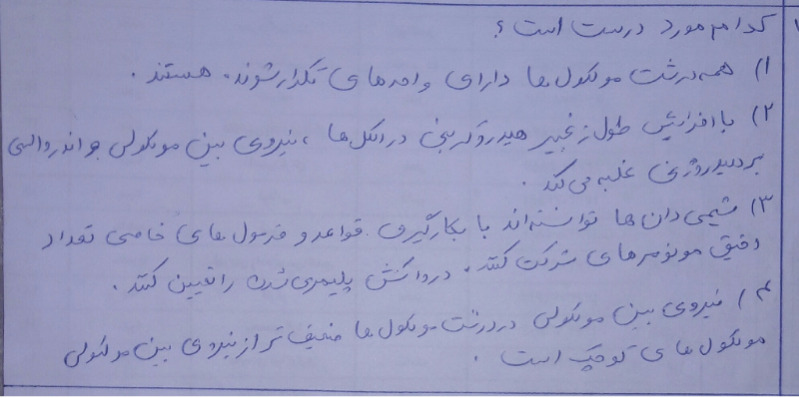 کدام مورد درست است؟
۱) همه درشت مولکول ها دارای واحدهای تکرار شونده هستند.
۲) با افزایش طول زنجیر هیدروکربنی در الکل ها، نیروی بین مولکولی واندروالسی
بر هیدروژنی غلبه می کند.
۳) شیمی دان ها توانسته اند با بکارگیری قواعد و فرمول های خاصی تعداد
دقیق مونومرهای شرکت کننده در واکنش پلیمری شدن را تعیین کنند.
۴) نیروی بین مولکولی در درشت مولکول ها ضعیف تر از نیروی بین مولکولی
مولکول های کوچک است.